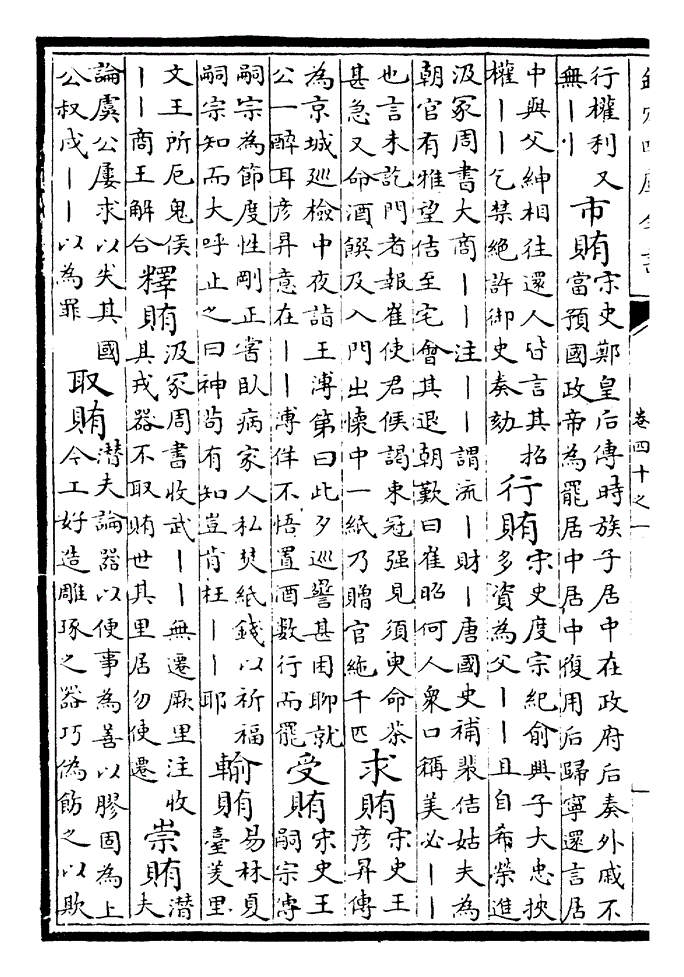 欽定四庫全書
卷四十之一
行權利又
無丨丨
市賄
宋史鄭皇后傳時族子居中在政府后奏外戚不
當預國政帝為罷居中居中復用后歸寧還言居
中與父紳相往還人皆言其招
權丨丨乞禁絕許御史奏劾
行賄
宋史度宗紀俞興子大忠挾
多資為父丨丨且自希榮進
汲冢周書大商丨丨注丨丨謂流丨財丨唐國史補裴佶姑夫為
朝官有雅望佶至宅會其退朝歎曰崔昭何人衆口稱美必丨丨
也言未訖門者報崔使君候謁束冠强見須臾命茶
甚急又命酒饌及入門出懷中一紙乃贈官絁千匹
求賄
宋史王
彥昇傳
為京城巡檢中夜詣王溥第曰此夕巡警甚困聊就
公一醉耳彥昇意在丨丨溥佯不悟置酒數行而罷
受賄
宋史王
嗣宗傳
嗣宗為節度性剛正嘗臥病家人私焚紙錢以祈福
嗣宗知而大呼止之曰神苟有知豈肯枉丨丨耶
輸賄
易林夏
臺羑里
文王所厄鬼侯
丨丨商王解合
釋賄
汲冢周書收武丨丨無遷厥里注收
其戎器不取賄世其里居勿使遷
崇賄
潛
夫
論虞公屢求以失其國
公叔戌丨丨以為罪
取賄
潛夫論器以便事為善以膠固為上
今工好造雕琢之器巧偽飭之以欺